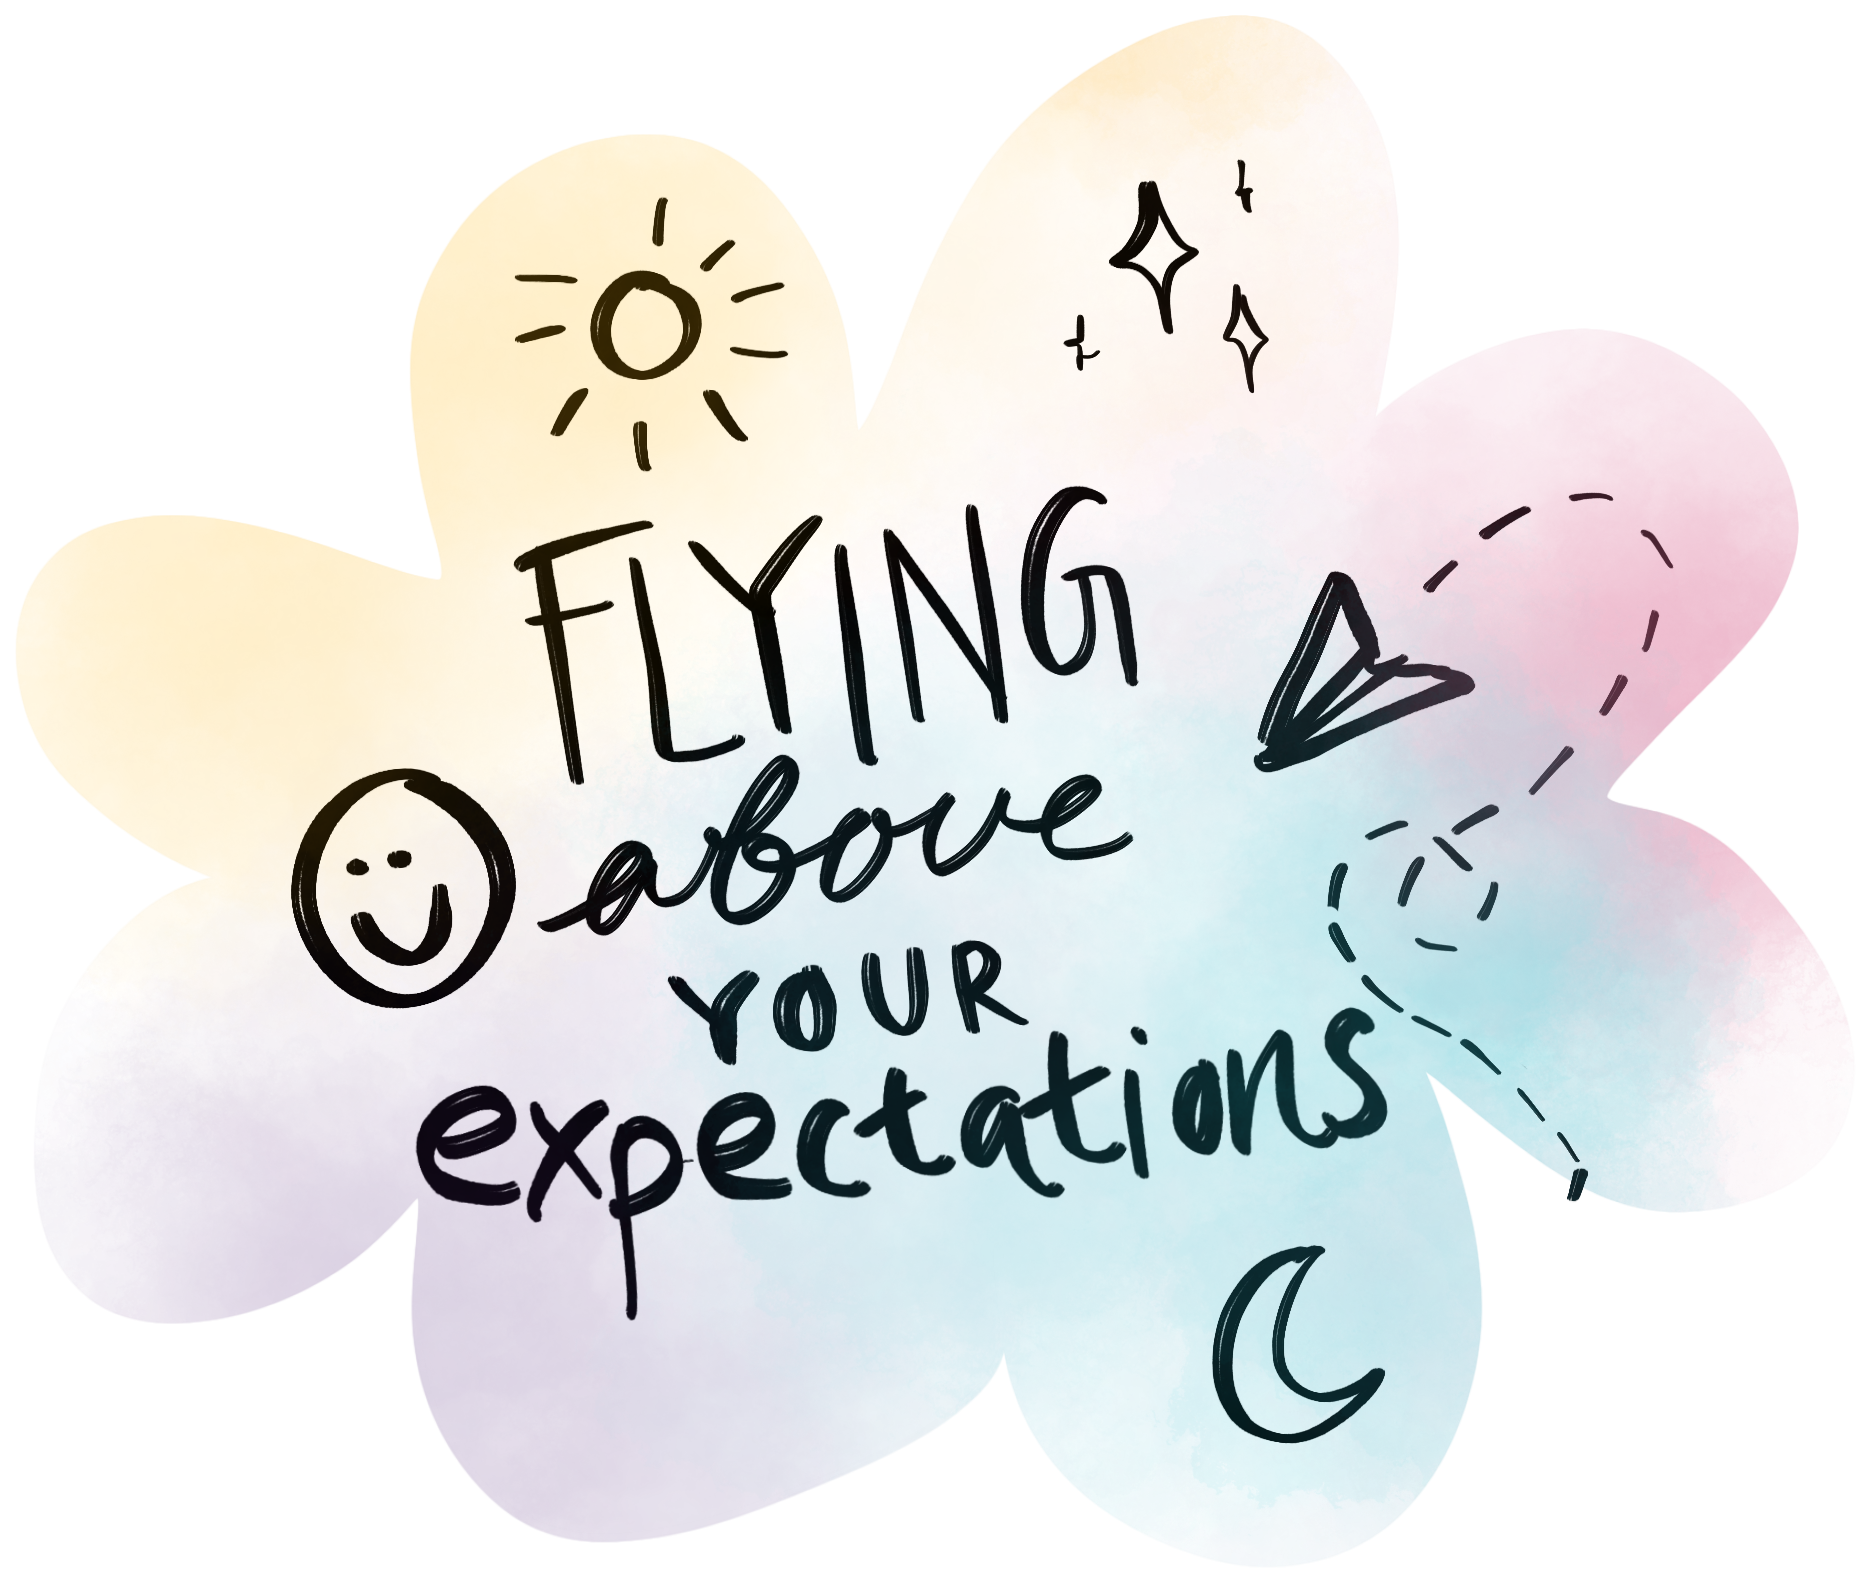 FLYING
above
YOUR
expectations